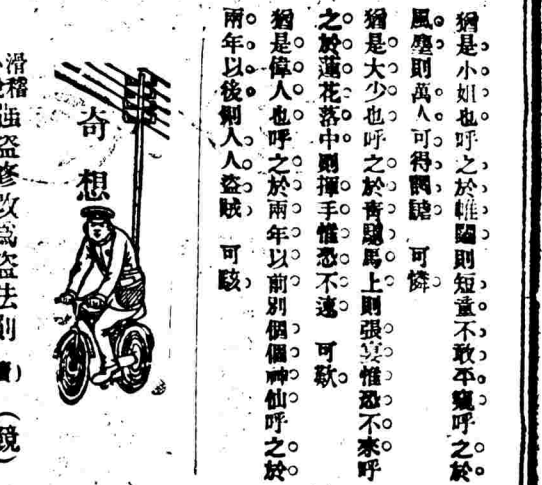 猶是小姐也呼之於帷闥則短童不敢平窺呼之於
風塵則萬人可得調謔　可憐
猶是大少也呼之於靑驄馬上則張宴惟恐不來呼
之於蓮花落中則揮手惟恐不速　可歎
猶是偉人也呼之於兩年以前別個個神仙呼之於
兩年以後則人人盜賊　可駭
奇想
滑稽
強盜修改爲盜法則